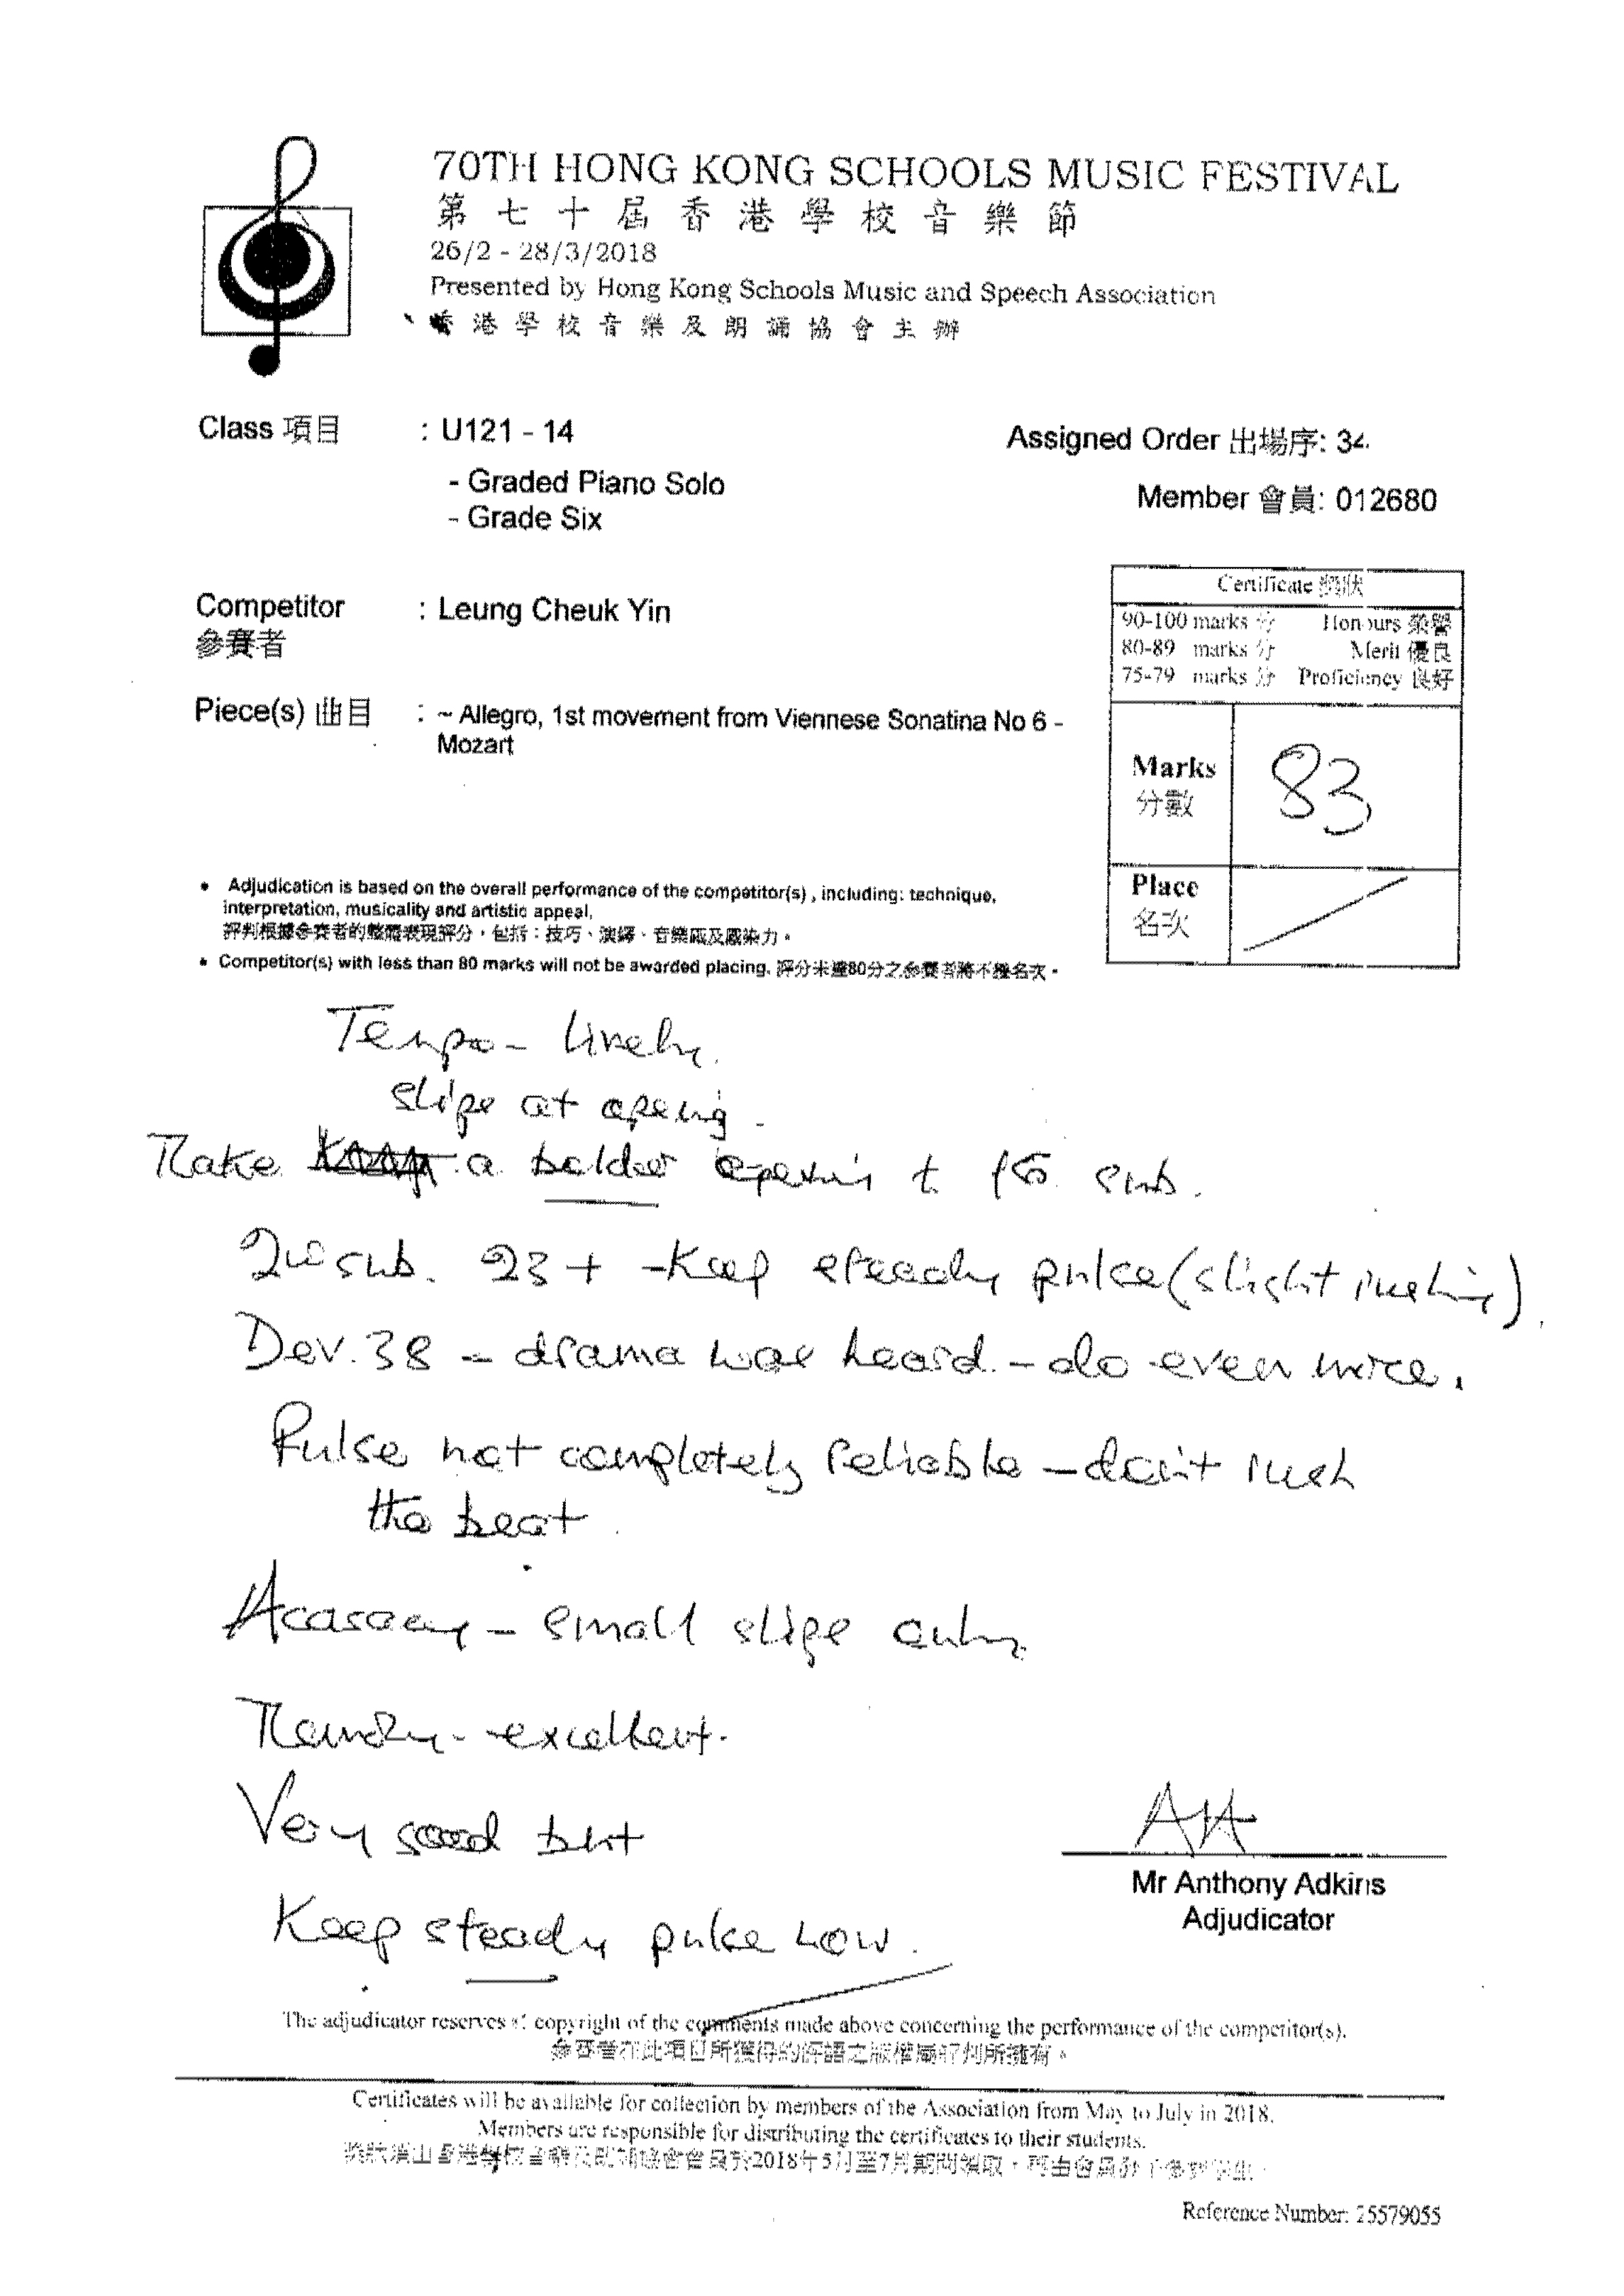 70TH HONG KONG SCHOOLS MUSIC FESTIVAL
第七十屆香港學校音樂節
26/2 - 28/3/2018
Presented by Hong Kong Schools Music and Speech Association
香港學校音樂及朗誦協會主辦
Class 項目 : U121 - 14
Assigned Order 出場序: 34
- Graded Piano Solo
Member 會員: 012680
- Grade Six
Certificate 獎狀
90-100 marks 分 Honours 榮譽
80-89 marks 分 Merit 優良
75-79 marks 分 Proficiency 良好
Competitor : Leung Cheuk Yin
參賽者
Piece(s) 曲目 : ~ Allegro, 1st movement from Viennese Sonatina No 6 -
Mozart
Marks 83
分數
Place
名次
• Adjudication is based on the overall performance of the competitor(s), including: technique,
interpretation, musicality and artistic appeal.
評判根據參賽者的整體表現評分，包括：技巧、演繹、音樂感及感染力。
• Competitor(s) with less than 80 marks will not be awarded placing. 評分未達80分之參賽者將不獲名次。
Tempo - lively.
slips at opening.
Make a bolder opening to 1st sub.
2nd sub. 23+ - Keep steady pulse (slight rushing).
Dev. 38 - drama was heard - do even more.
Pulse not completely reliable - don't rush
the beat.
Accuracy - small slips only.
Memory - excellent.
Very good but
Keep steady pulse now.
Mr Anthony Adkins
Adjudicator
The adjudicator reserves copyright of the comments made above concerning the performance of the competitor(s).
參賽者在此項目所獲得的評語之版權屬評判所擁有。
Certificates will be available for collection by members of the Association from May to July in 2018.
Members are responsible for distributing the certificates to their students.
獎狀須由香港學校音樂及朗誦協會會員於2018年5月至7月期間領取，再由會員發予參賽學生。
Reference Number: 25579055